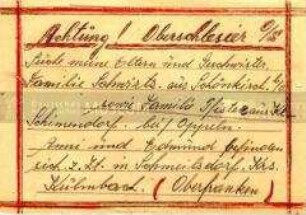 Achtung! Oberschlesier O/S
Suche meine Eltern und Geschwister
Familie Schwirtz aus Schönkirch O/S
sowie Familie Pfister aus Kl.
Schimendorf bei Oppeln.
Anni und Edmund befinden
sich z. Zt. in Schmeilsdorf Krs.
Kulmbach (Oberfranken)